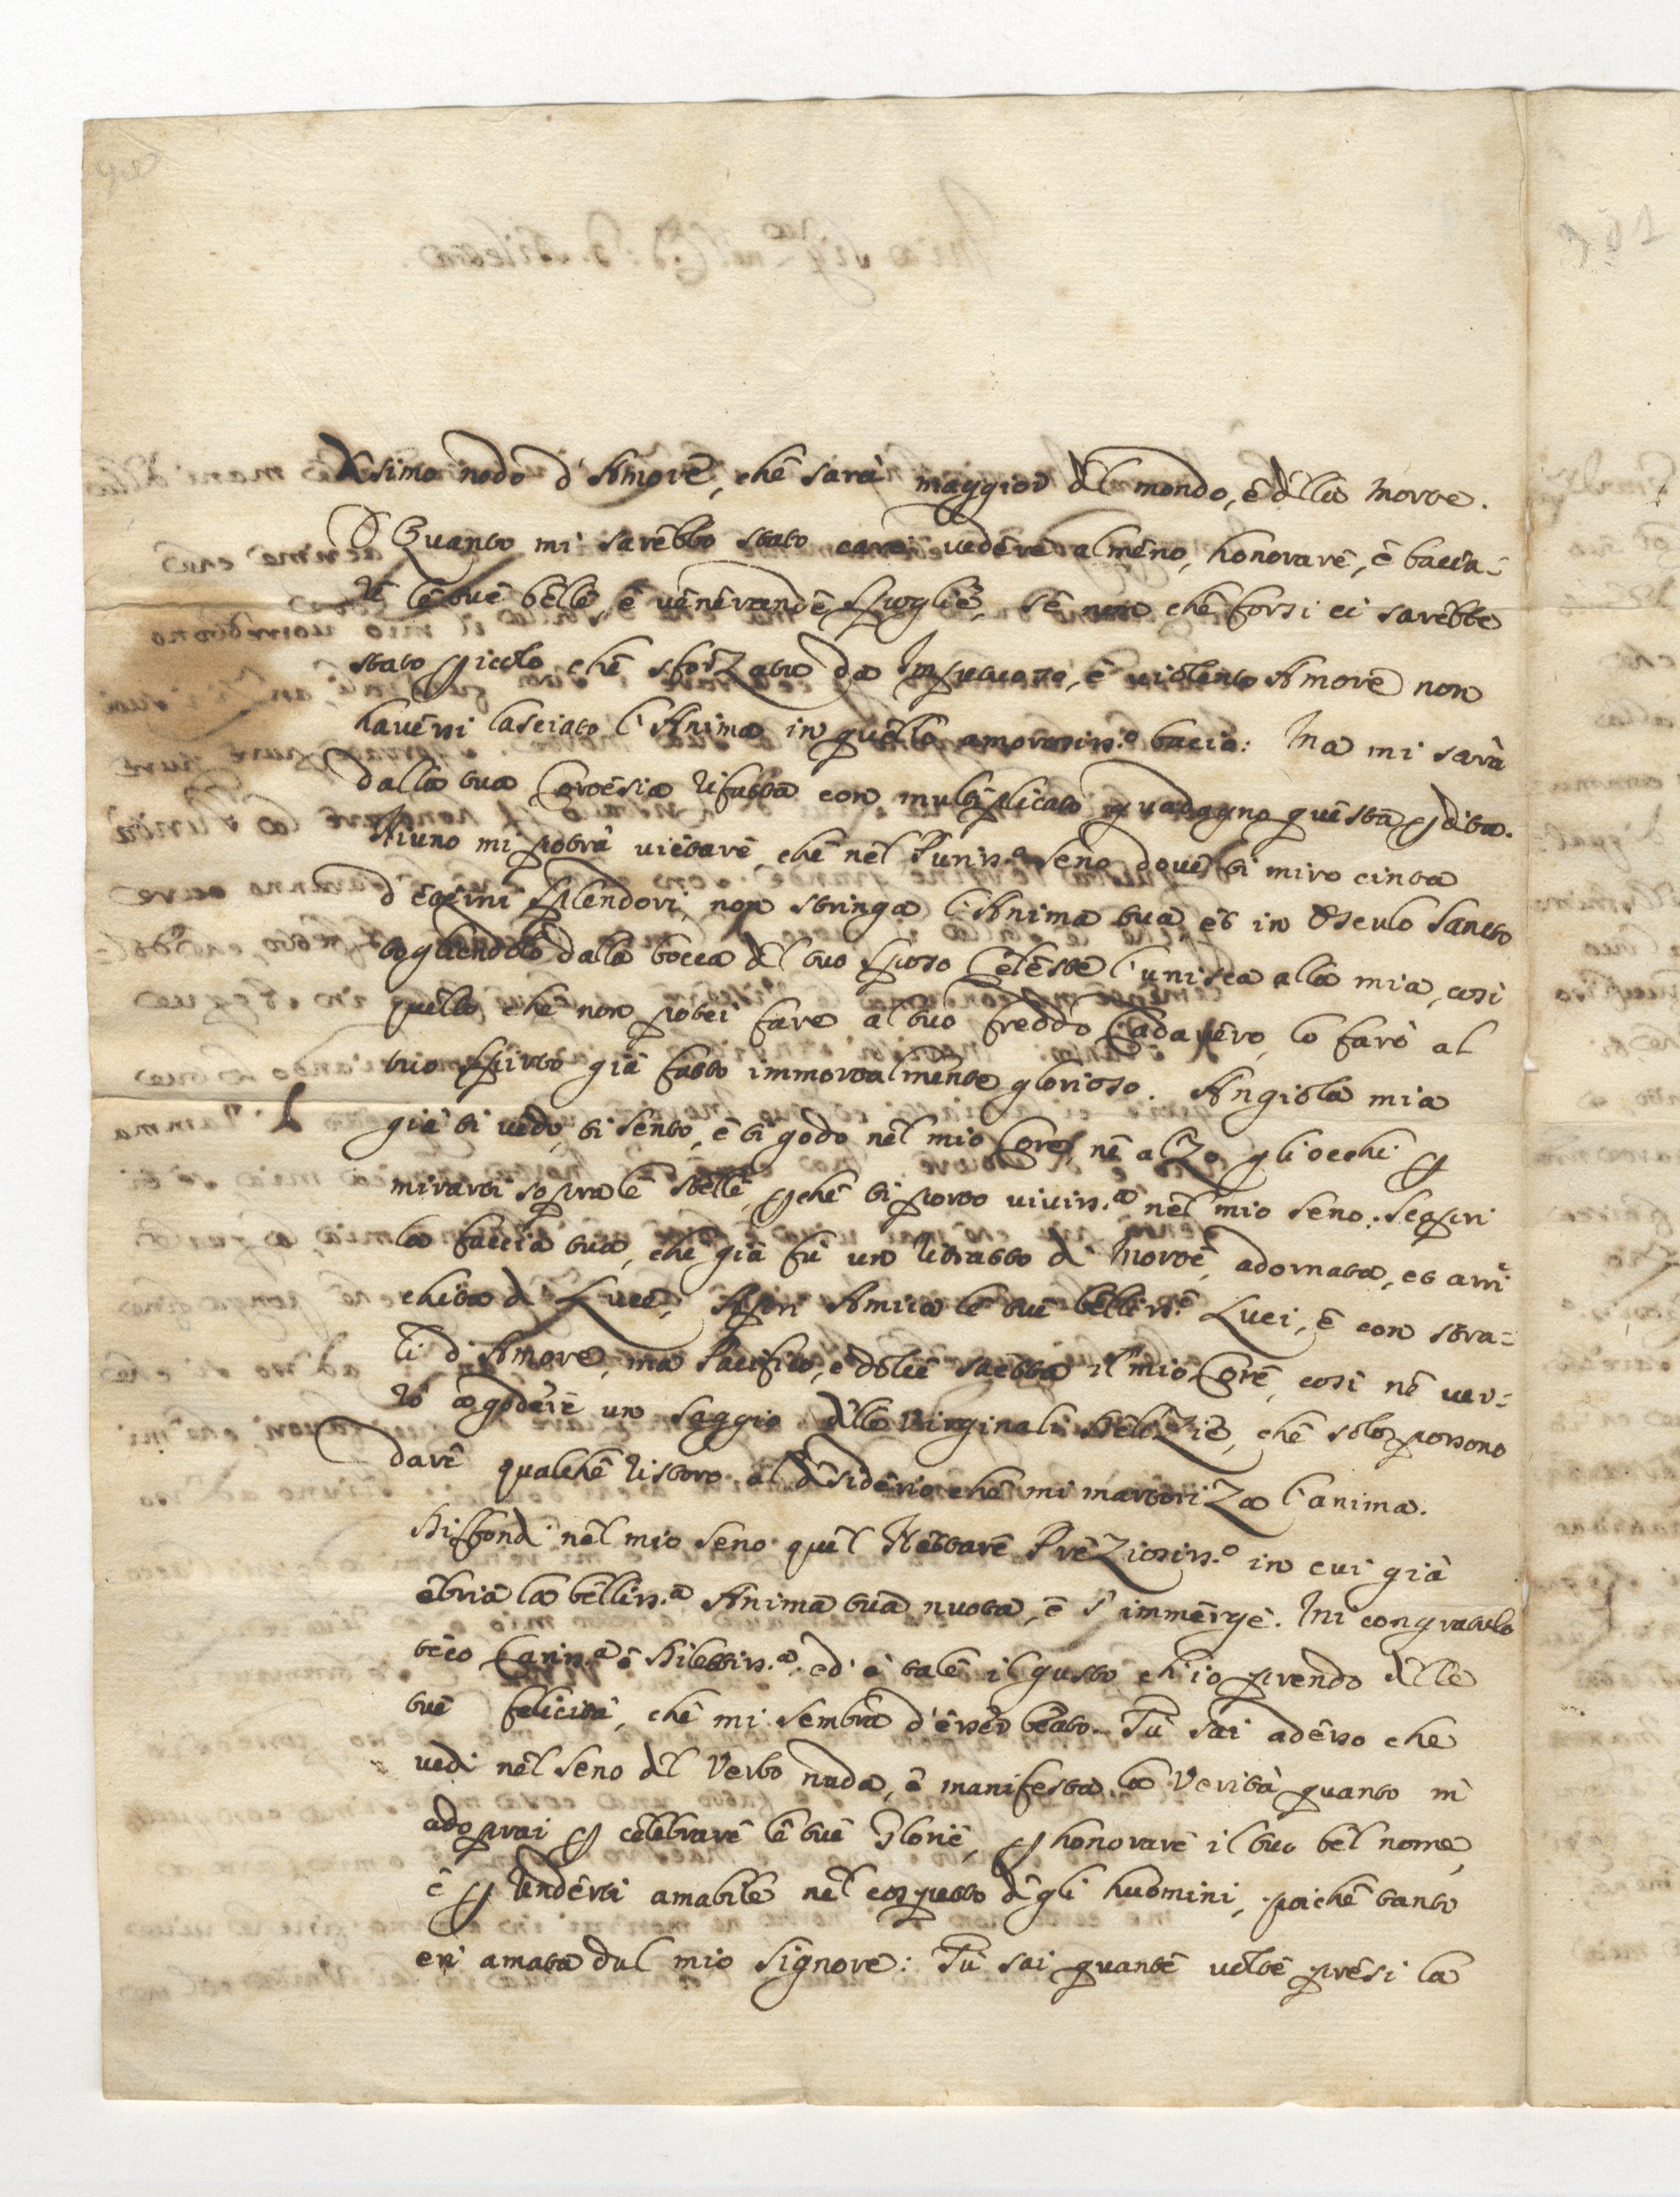 desimo nodo d'Amore, che sarà maggior del mondo, è della Morte.
O Quanto mi sarebbe stato caro vedere almeno, honorare, è baccia=
re le tue belle, è venerande spoglie, se non che forsi ci sarebbe
stato pericolo che sforzato da Impetuoso, è violento Amore non
havessi lasciato l'Anima in quello amorosiss.o bacio: Ma mi sarà
dalla tua Cortesia rifatta con multiplicato guadagno questa perdita.
Niuno mi potrà vietare, che nel Puriss.o seno dove ti miro cinta
d'eterni splendori, non stringa l'Anima tua et in Osculo Sancto
togliendola dalla bocca del tuo sposo Celeste l'unisca alla mia, così
quello che non potei fare al tuo freddo Cadavero, lo farò al
tuo spirto già fatto immortalmente glorioso. Angiola mia
già ti vedo, ti sento, è ti godo nel mio Core, nè alzo gli occhi per
mirarti sopra le stelle, perche ti porto viviss.a nel mio seno. Scopri
la faccia tua, che già fù un ritratto di Morte, adornata, et arri
chita di Luce, Apri Amica le tue belliss.e Luci, è con stra=
li d'Amore, ma Pacifico, è dolce saetta il mio Core, così ne ver=
rò a godere un saggio delle Virginali Delizie, che solo possono
dare qualche ristoro al desiderio che mi martoriza l'anima.
Diffondi nel mio seno quel Nettare Preziosiss.o in cui già
ebria la belliss.a Anima tua nuota, è s'immerge. Mi congratulo
teco Cariss.a è Dilettiss.a, ed è tale il gusto ch'io prendo delle
tue felicità, che mi sembra d'esser beato. Tù sai adesso che
vedi nel seno del Verbo nuda, è manifesta la Verità quanto m'
adoprai per celebrare le tue Glorie, per honorare il tuo bel nome,
è per renderti amabile nel cospetto degli huomini, poiche tanto
eri amata dal mio Signore: Tù sai quante volte presi la